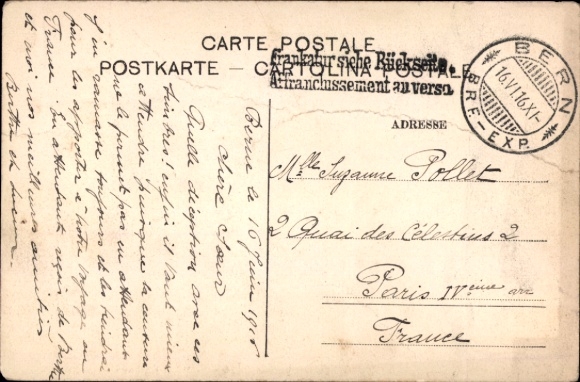 CARTE POSTALE
POSTKARTE — CARTOLINA POSTALE
Frankatur siehe Rückseite.
Affranchissement au verso.
BERN
16.VI.16.XI-
BRF.-EXP.
ADRESSE
Mlle Suzanne Pollet
2 Quai des Célestins 2
Paris IVème arr
France
Berne le 16 Juin 1916
Chère Sœur
Quelle déception avec ces
timbres! enfin il vaut mieux
attendre puisque la censure
ne le permet pas en attendant
j'en ramasse toujours et les tiendrai
pour les apporter à notre voyage en
France. En attendant reçois de Berthe
et moi nos meilleures amitiés
Berthe et